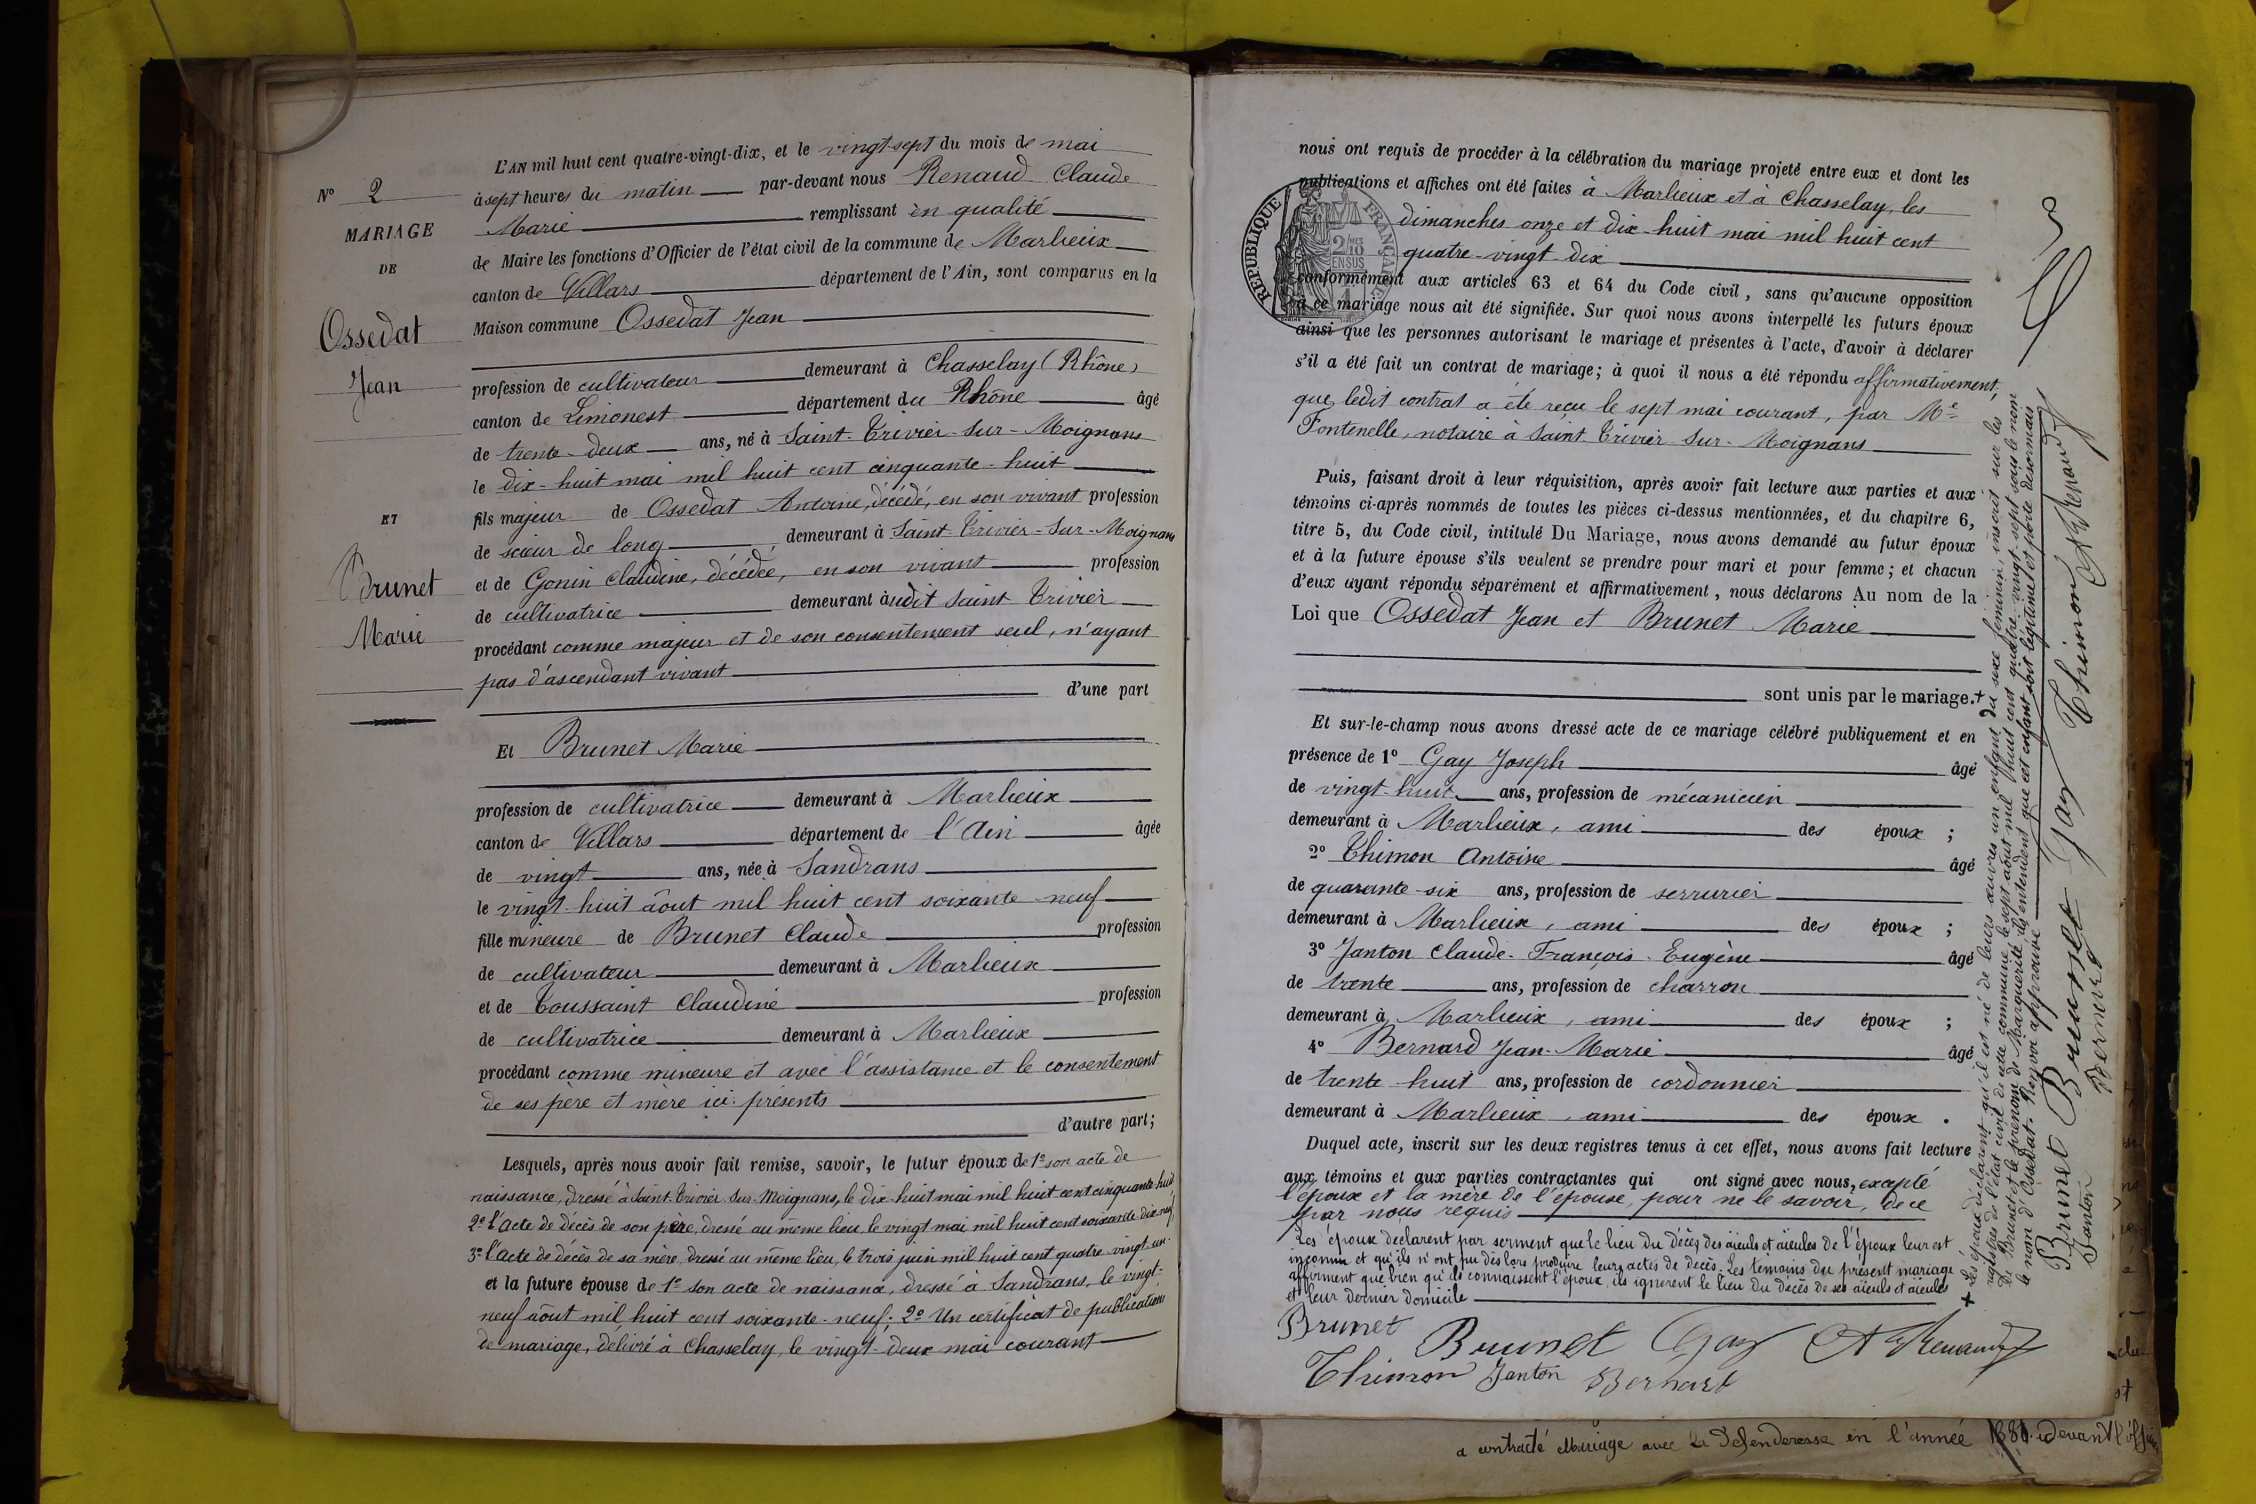 L'AN mil huit cent quatre-vingt-dix, et le vingt-sept du mois de mai
à sept heures du matin par-devant nous Renaud Claude
Marie remplissant en qualité
de Maire les fonctions d'Officier de l'état civil de la commune de Marlieux
canton de Villars département de l'Ain, sont comparus en la
Maison commune Ossedat Jean
profession de cultivateur demeurant à Chasselay (Rhône)
canton de Limonest département du Rhône âgé
de trente-deux ans, né à Saint-Trivier-sur-Moignans
le dix-huit mai mil huit cent cinquante-huit
fils majeur de Ossedat Antoine, décédé, en son vivant profession
de scieur de long demeurant à Saint-Trivier-sur-Moignans
et de Gonin Claudine, décédée, en son vivant profession
de cultivatrice demeurant àudit Saint Trivier
procédant comme majeur et de son consentement seul, n'ayant
pas d'ascendant vivant
d'une part
Et Brunet Marie
profession de cultivatrice demeurant à Marlieux
canton de Villars département de l'Ain âgée
de vingt ans, née à Sandrans
le vingt-huit août mil huit cent soixante-neuf
fille mineure de Brunet Claude profession
de cultivateur demeurant à Marlieux
et de Toussaint Claudine profession
de cultivatrice demeurant à Marlieux
procédant comme mineure et avec l'assistance et le consentement
de ses père et mère ici présents
d'autre part;
Lesquels, après nous avoir fait remise, savoir, le futur époux de 1º son acte de
naissance, dressé à Saint-Trivier-sur-Moignans, le dix-huit mai mil huit cent cinquante-huit
2º l'acte de décès de son père, dressé au même lieu, le vingt mai mil huit cent soixante-dix-neuf
3º l'acte de décès de sa mère, dressé au même lieu, le trois juin mil huit cent quatre-vingt-un.
et la future épouse de 1º son acte de naissance, dressé à Sandrans, le vingt-
neuf août mil huit cent soixante-neuf; 2º Un certificat de publications
de mariage, délivré à Chasselay, le vingt-deux mai courant
Nº 2
MARIAGE
DE
Ossedat
Jean
ET
Brunet
Marie
nous ont requis de procéder à la célébration du mariage projeté entre eux et dont les
publications et affiches ont été faites à Marlieux et à Chasselay, les
dimanches onze et dix-huit mai mil huit cent
quatre-vingt-dix
conformément aux articles 63 et 64 du Code civil, sans qu'aucune opposition
à ce mariage nous ait été signifiée. Sur quoi nous avons interpellé les futurs époux
ainsi que les personnes autorisant le mariage et présentes à l'acte, d'avoir à déclarer
s'il a été fait un contrat de mariage; à quoi il nous a été répondu affirmativement,
que ledit contrat a été reçu le sept mai courant, par Me
Fontenelle, notaire à Saint-Trivier-sur-Moignans
Puis, faisant droit à leur réquisition, après avoir fait lecture aux parties et aux
témoins ci-après nommés de toutes les pièces ci-dessus mentionnées, et du chapitre 6,
titre 5, du Code civil, intitulé Du Mariage, nous avons demandé au futur époux
et à la future épouse s'ils veulent se prendre pour mari et pour femme; et chacun
d'eux ayant répondu séparément et affirmativement, nous déclarons Au nom de la
Loi que Ossedat Jean et Brunet Marie
sont unis par le mariage.+
Et sur-le-champ nous avons dressé acte de ce mariage célébré publiquement et en
présence de 1º Gay Joseph âgé
de vingt-huit ans, profession de mécanicien
demeurant à Marlieux, ami des époux ;
2º Thimon Antoine âgé
de quarante-six ans, profession de serrurier
demeurant à Marlieux, ami des époux ;
3º Janton Claude-François-Eugène âgé
de trente ans, profession de charron
demeurant à Marlieux, ami des époux ;
4º Bernard Jean-Marie âgé
de trente-huit ans, profession de cordonnier
demeurant à Marlieux, ami des époux .
Duquel acte, inscrit sur les deux registres tenus à cet effet, nous avons fait lecture
aux témoins et aux parties contractantes qui ont signé avec nous, excepté
l'époux et la mère de l'épouse, pour ne le savoir, de ce
par nous requis
Les époux déclarent par serment que le lieu du décès des aïeuls et aïeules de l'époux leur est
inconnu et qu'ils n'ont pu dès lors produire leurs actes de décès. Les témoins du présent mariage
affirment que bien qu'ils connaissent l'époux, ils ignorent le lieu du décès de ses aïeuls et aïeules
et leur dernier domicile
Brunet Brunet Gay Renaud
Thimon Janton Bernard
+ Les époux déclarent qu'il est né de leurs œuvres un enfant du sexe féminin, inscrit sur les
registres de l'état civil de cette commune, le sept août mil huit cent quatre-vingt-sept sous le nom
de Brunet et le prénom de Marguerite, ils entendent que cet enfant soit légitimé et porte désormais
le nom d'Ossedat. Renvoi approuvé
Brunet Brunet Gay Thimon Renaud
Janton Bernard
RÉPUBLIQUE FRANÇAISE
a contracté Mariage avec la défenderesse en l'année